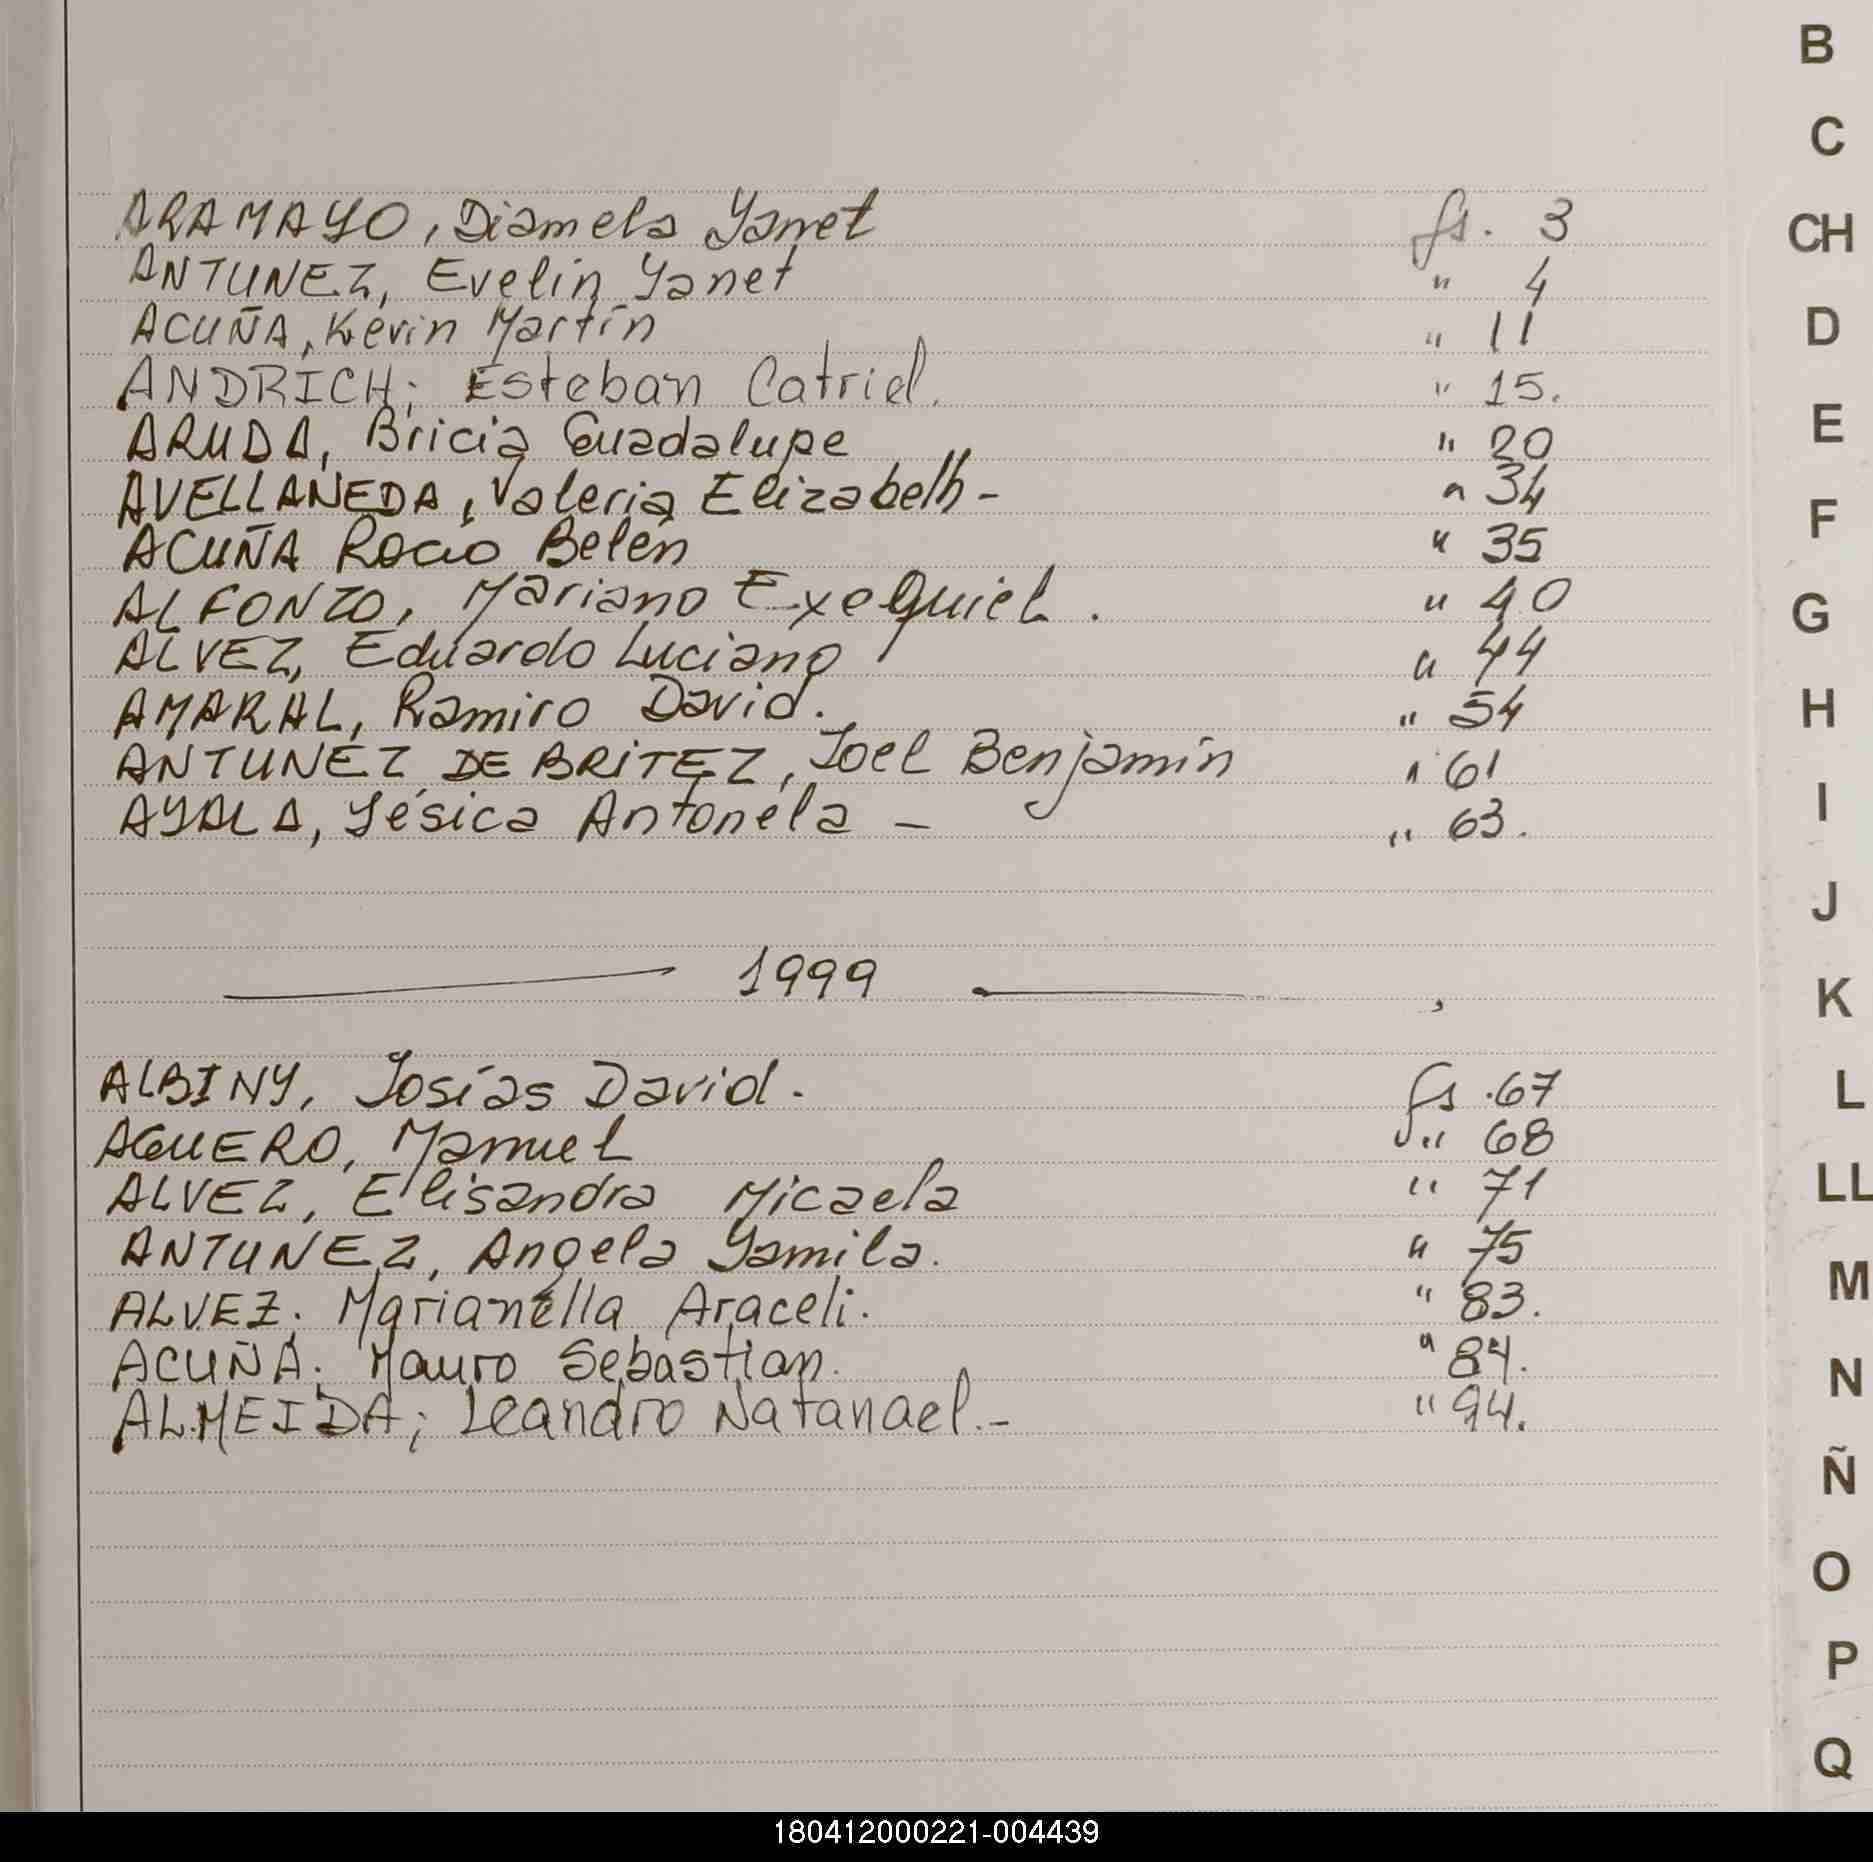 ARAMAYO, Diamela Yanet fs. 3
ANTUNEZ, Evelin Yanet " 4
ACUÑA, Kevin Martín " 11
ANDRICH; Esteban Catriel. " 15.
ARUDA, Bricia Guadalupe " 20
AVELLANEDA, Valeria Elizabeth - " 34
ACUÑA Rocio Belén " 35
ALFONZO, Mariano Exequiel. " 40
ALVEZ, Eduardo Luciano " 44
AMARAL, Ramiro David. " 54
ANTUNEZ DE BRITEZ, Joel Benjamín " 61
AYALA, Yésica Antonela - " 63.
1999
ALBINY, Josías David. fs. 67
AGUERO, Manuel " 68
ALVEZ, Elisandra Micaela " 71
ANTUNEZ, Angela Yamila. " 75
ALVEZ. Marianella Araceli. " 83.
ACUÑA. Mauro Sebastian. " 84.
ALMEIDA; Leandro Natanael.- " 94.
B
C
CH
D
E
F
G
H
I
J
K
L
LL
M
N
Ñ
O
P
Q
180412000221-004439